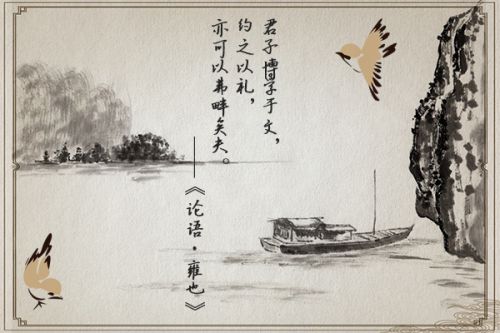 君子博学于文，
约之以礼，
亦可以弗畔矣夫。
——《论语·雍也》